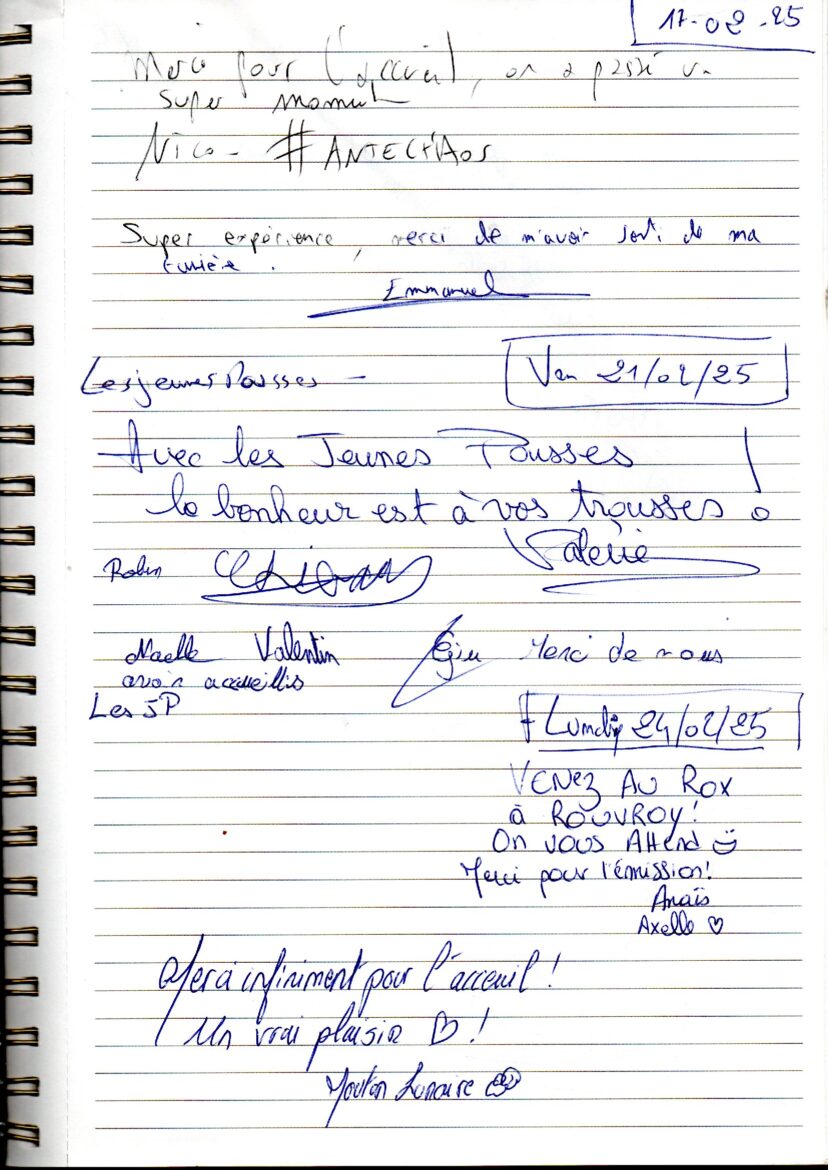 17-02-25
Merci pour l'accueil, on a passé un
super moment
Nico - #ANTECHAOS
Super expérience, merci de m'avoir sorti de ma
tanière.
Emmanuel
Les jeunes Pousses -
Ven 21/02/25
Avec les Jeunes Pousses
le bonheur est à vos trousses !
Robin Valérie
Maelle Valentin Merci de nous
avoir accueillis
Les JP
Lundi 24/02/25
VENEZ AU ROX
à ROUVROY!
On vous Attend
Merci pour l'émission!
Anaïs
Axelle ♡
Merci infiniment pour l'acceuil !
Un vrai plaisir ♡ !
Mouton Lunaire